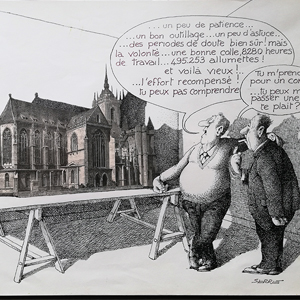 ...un peu de patience...
...un bon outillage...un peu d'astuce...
...des périodes de doute bien sûr! mais
la volonté...une bonne colle 8280 heures
de travail...495.253 allumettes!
et voilà vieux!...
...l'effort récompensé!
tu peux pas comprendre
Tu m'prends
pour un con
...tu peux m
passer une
te plaît?
SERRE